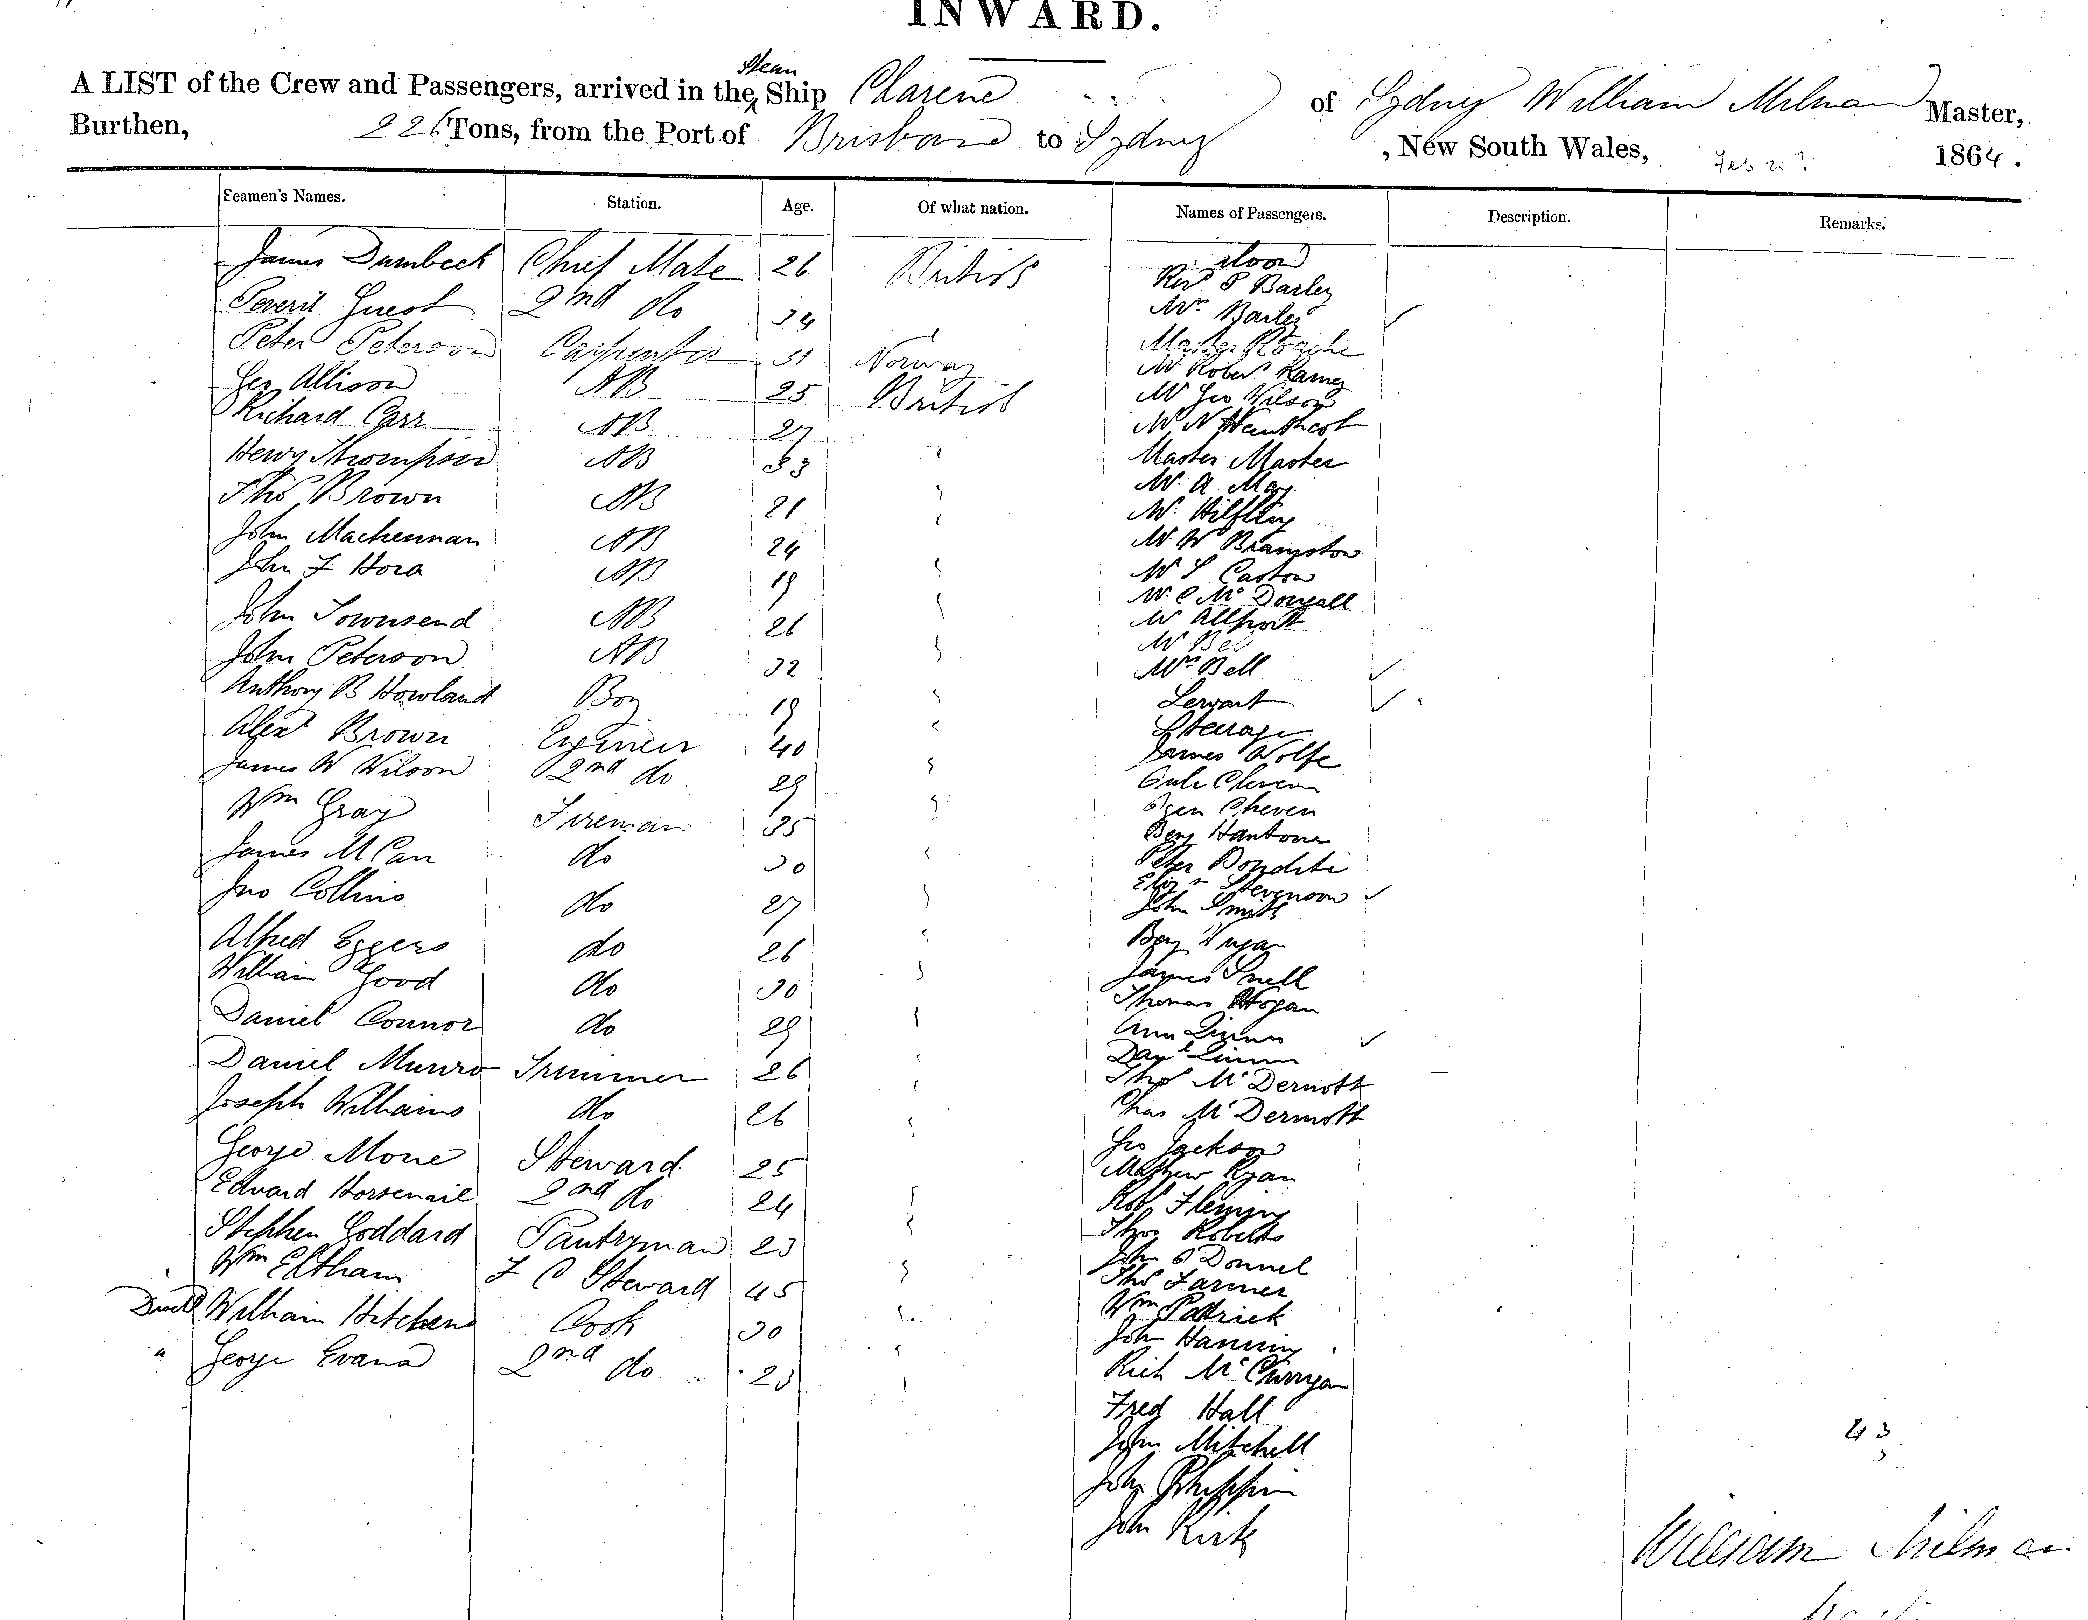 INWARD.
A LIST of the Crew and Passengers, arrived in the Steam Ship Clarence of Sydney William Milman Master,
Burthen, 226 Tons, from the Port of Brisbane to Sydney , New South Wales, Feb 1864.
Seamen's Names. Station. Age. Of what nation. Names of Passengers. Description. Remarks.
James Dumbeck Chief Mate 26 British
Rev
Peveril Guest 2nd do 34 Mr Barley
Peter Peterson Carpenter 31 Norway Master
Mr Robert Ramey
Geo Allison AB 25 British Mr Geo Wilson
Richard Carr AB 27 Mr N Heathcot
Henry Thompson AB 33 Master Master
Thos Brown AB 21 Mr A May
Mr
John Mackennan AB 24 Mr W Bramston
John F Hora AB 19 Mr S Caston
Mr C McDougall
John Townsend AB 26 Mr Allport
John Peterson AB 32 Mr Bell
Mrs Bell
Anthony B Howland Boy 19 Servant
Alexr Brown Engineer 40 Steerage
James Wolfe
James W Wilson 2nd do 29
Cheven
Wm Gray Fireman 35 Benj
James McCan do 30 Peter
Eliz Stevenson
Jno Collins do 27 John Smith
Alfred Eggers do 26 Benj
William Good do 30 James Snell
Thomas Hogan
Daniel Connor do 29 Ann
Danl
Daniel Munro Trimmer 26 Thos McDermott
Joseph Williams do 26 Chas McDermott
George Morie Steward 25 Geo Jackson
Mathew Ryan
Edward Horsenail 2nd do 24 Robt Fleming
Stephen Goddard Pantryman 23 Thos Roberts
Wm Eltham F C Steward 45 John O Donnel
Thos Farmer
William Hitchens Cook 30 Wm Patrick
John Hanning
" George Evans 2nd do 23 Rich McCurryan
Fred Hall
John Mitchell
John
John Kirk
43
William Milman